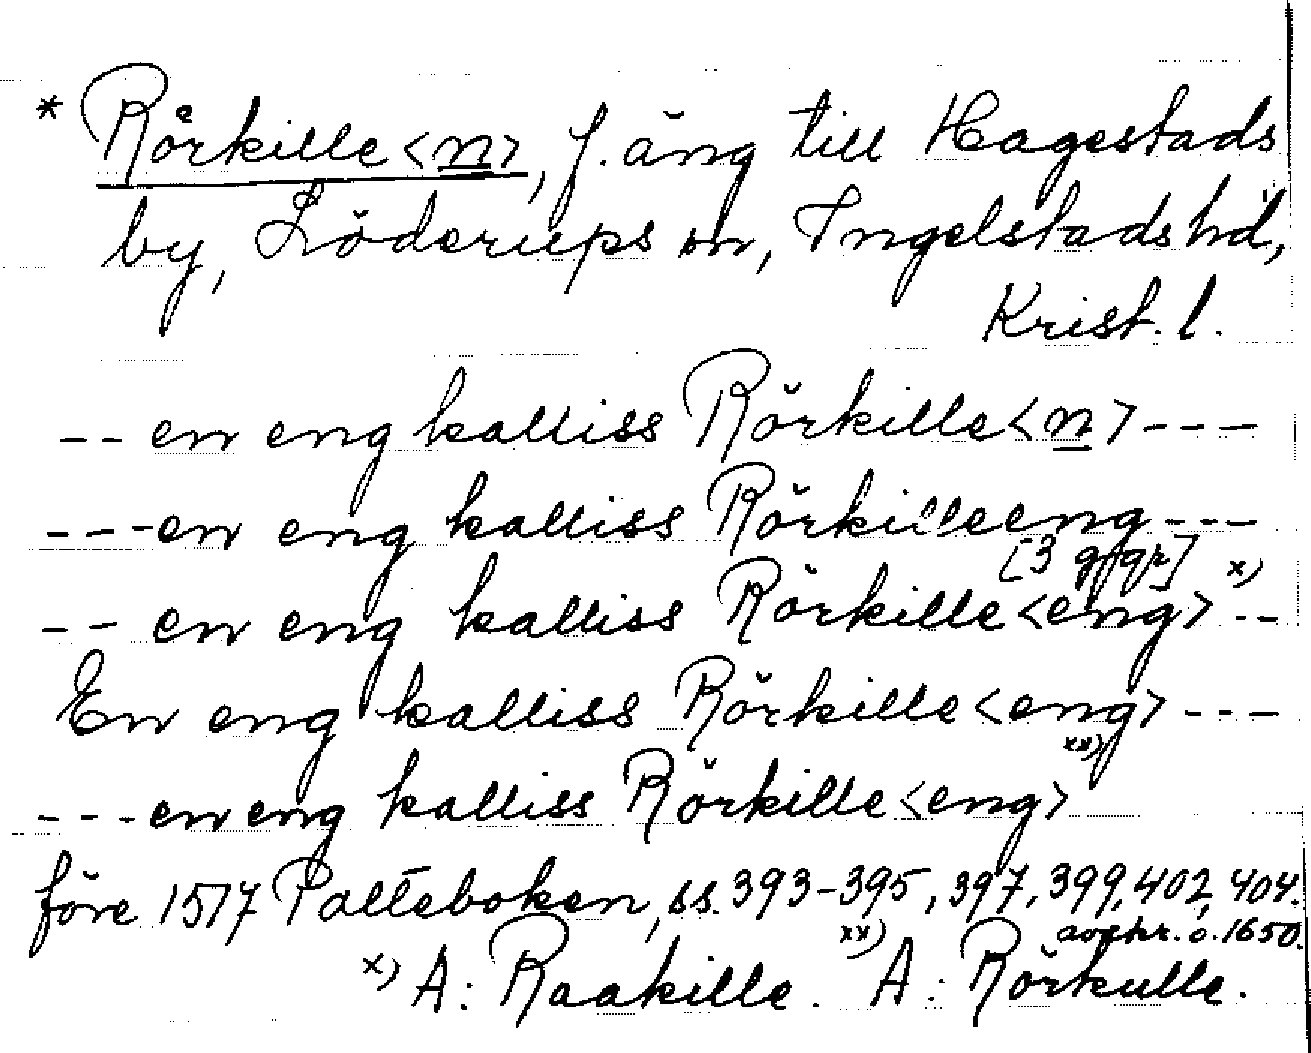 * Rörkille<n>, f. äng till Hagestads
by, Löderups sn, Ingelstads hd,
Krist. l.
-- en eng kalliss Rörkille<n> ---
--- en eng kalliss Rörkilleeng ---
[3 ggr]
-- en eng kalliss Rörkille<eng> x) --
En eng kalliss Rörkille<eng> ---
xx)
--- en eng kalliss Rörkille<eng>
före 1517 Palteboken, ss. 393-395, 397, 399, 402, 404.
avskr. o. 1650.
x) A: Raakille. xx) A: Rörkulle.